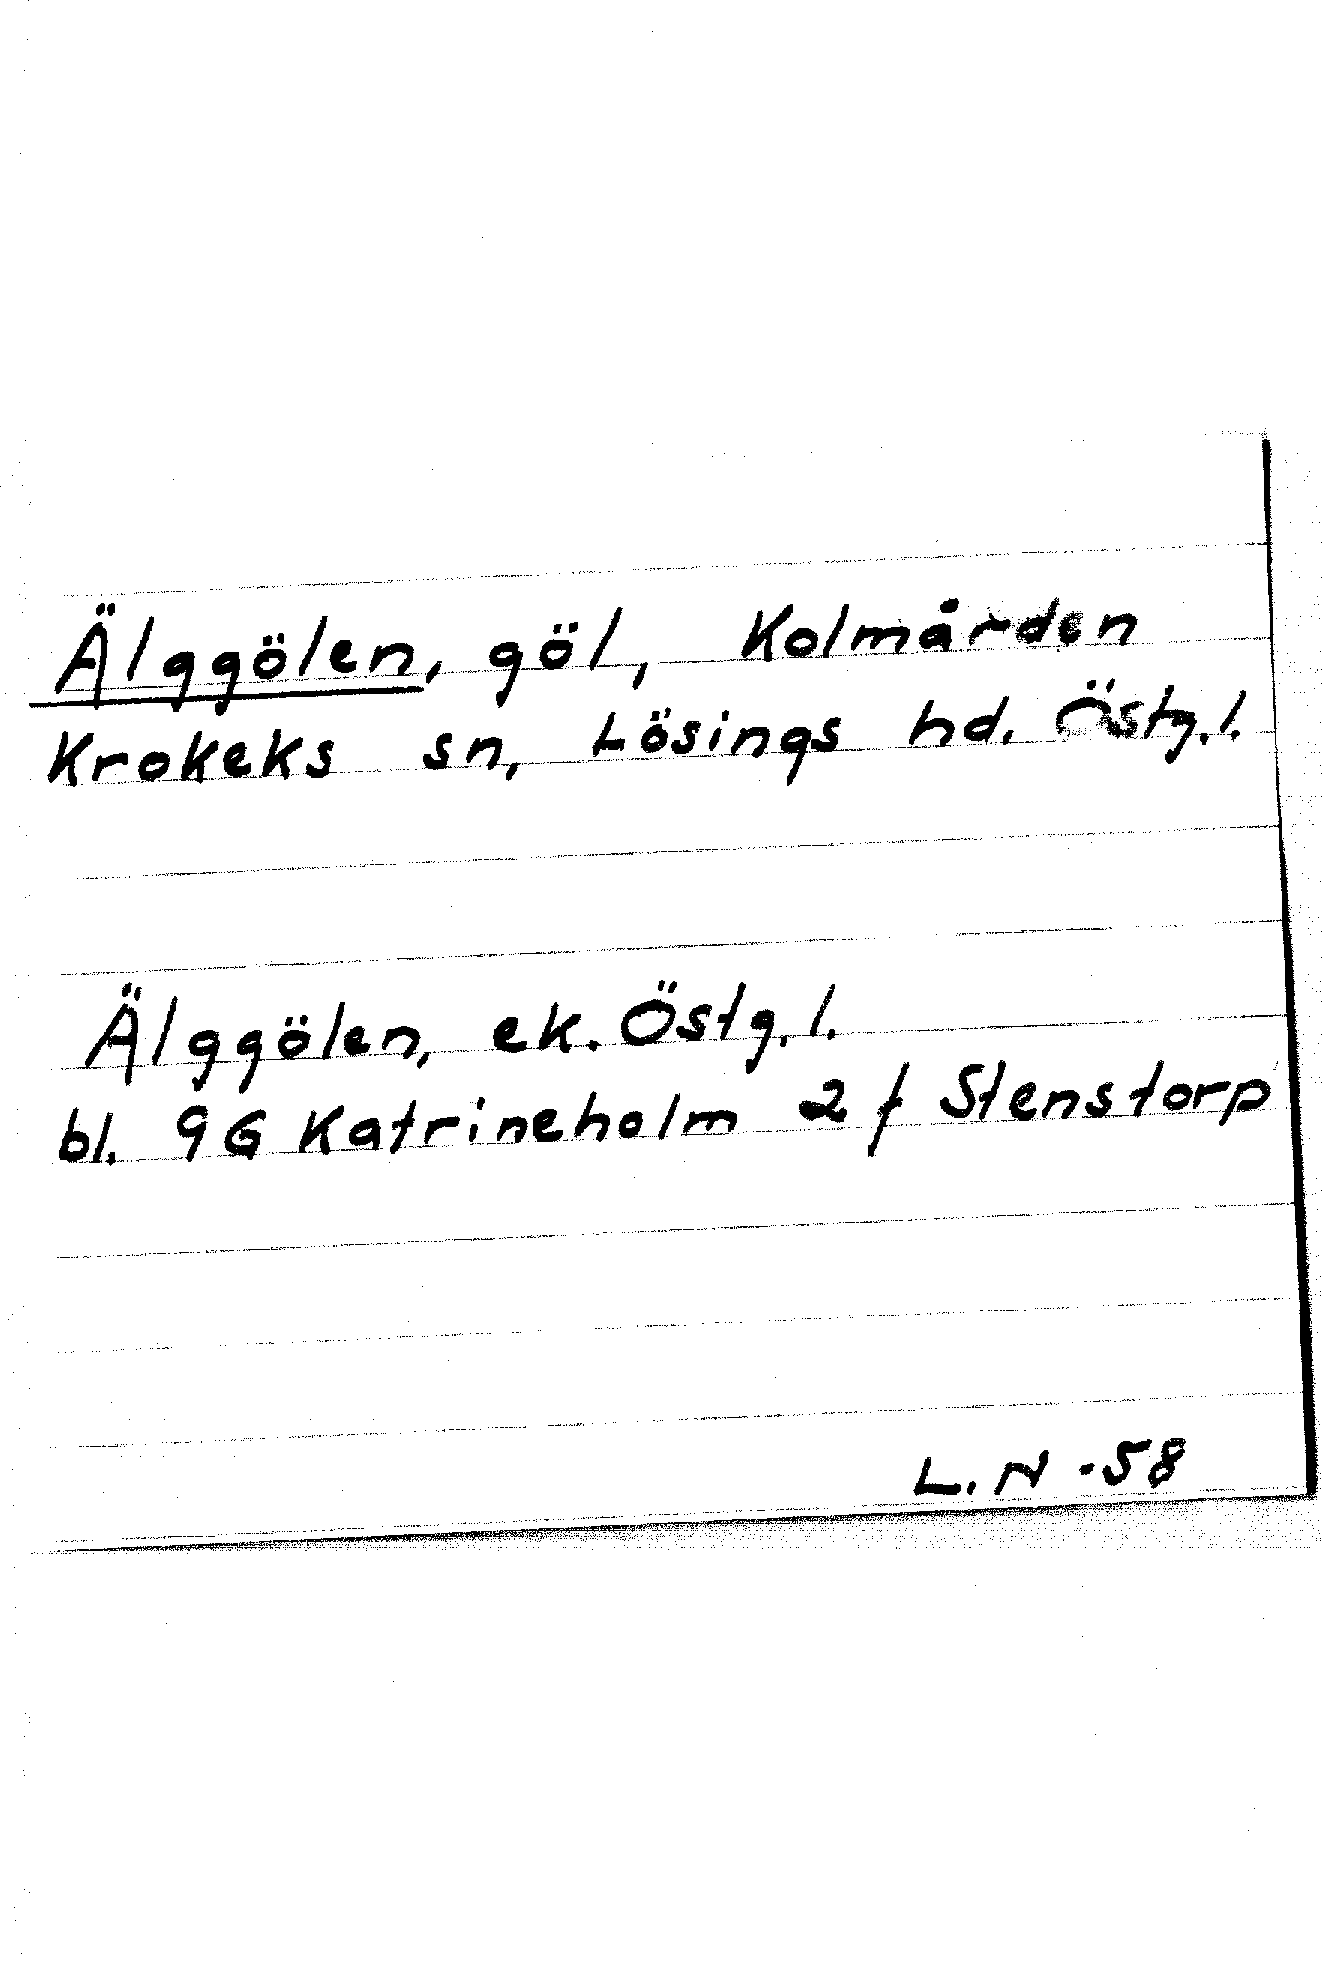 Älggölen, göl, Kolmården
Krokeks sn, Lösings hd. Östg.l.
Älggölen, ek. Östg.l.
bl. 9G Katrineholm 2 f Stenstorp
L.N -58